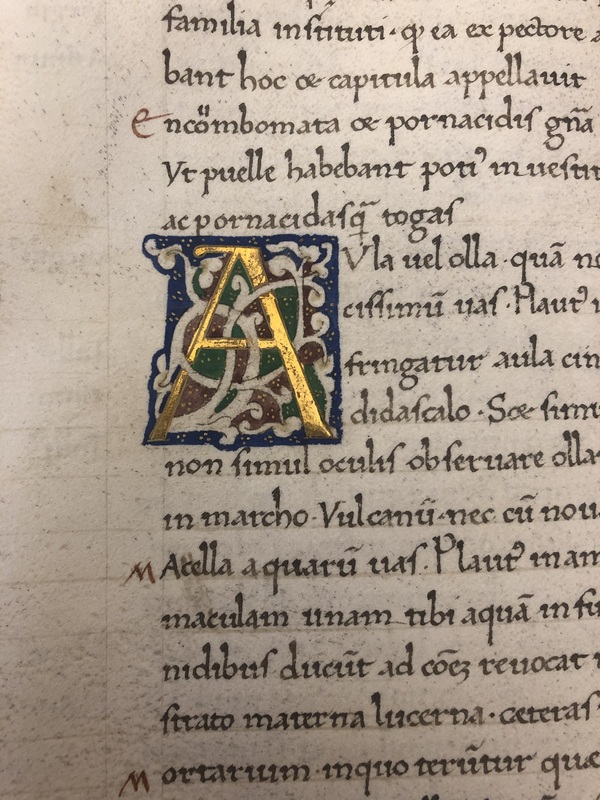 familia instituti · qͥ ea ex pectore
bant hoc & capitula appellauit
Encombomata & pornacidis gñā
Vt puelle habebant potiꝰ in uestit
ac pornacidasq̄ togas
AVla uel olla · quā n
cissimū uas · Plautꝰ
fringatur aula cin
didascalo · Sæ simu
non simul oculis obseruare olla
in marcho · Vulcanū · nec cū nou
MAtella aquarū uas. Plautꝰ in am
matulam unam tibi aquā in fu
nidibus ducūt ad cōeꝫ reuocat
strato materna lucerna · cæteras
Mortarium inquo terūtur quæ